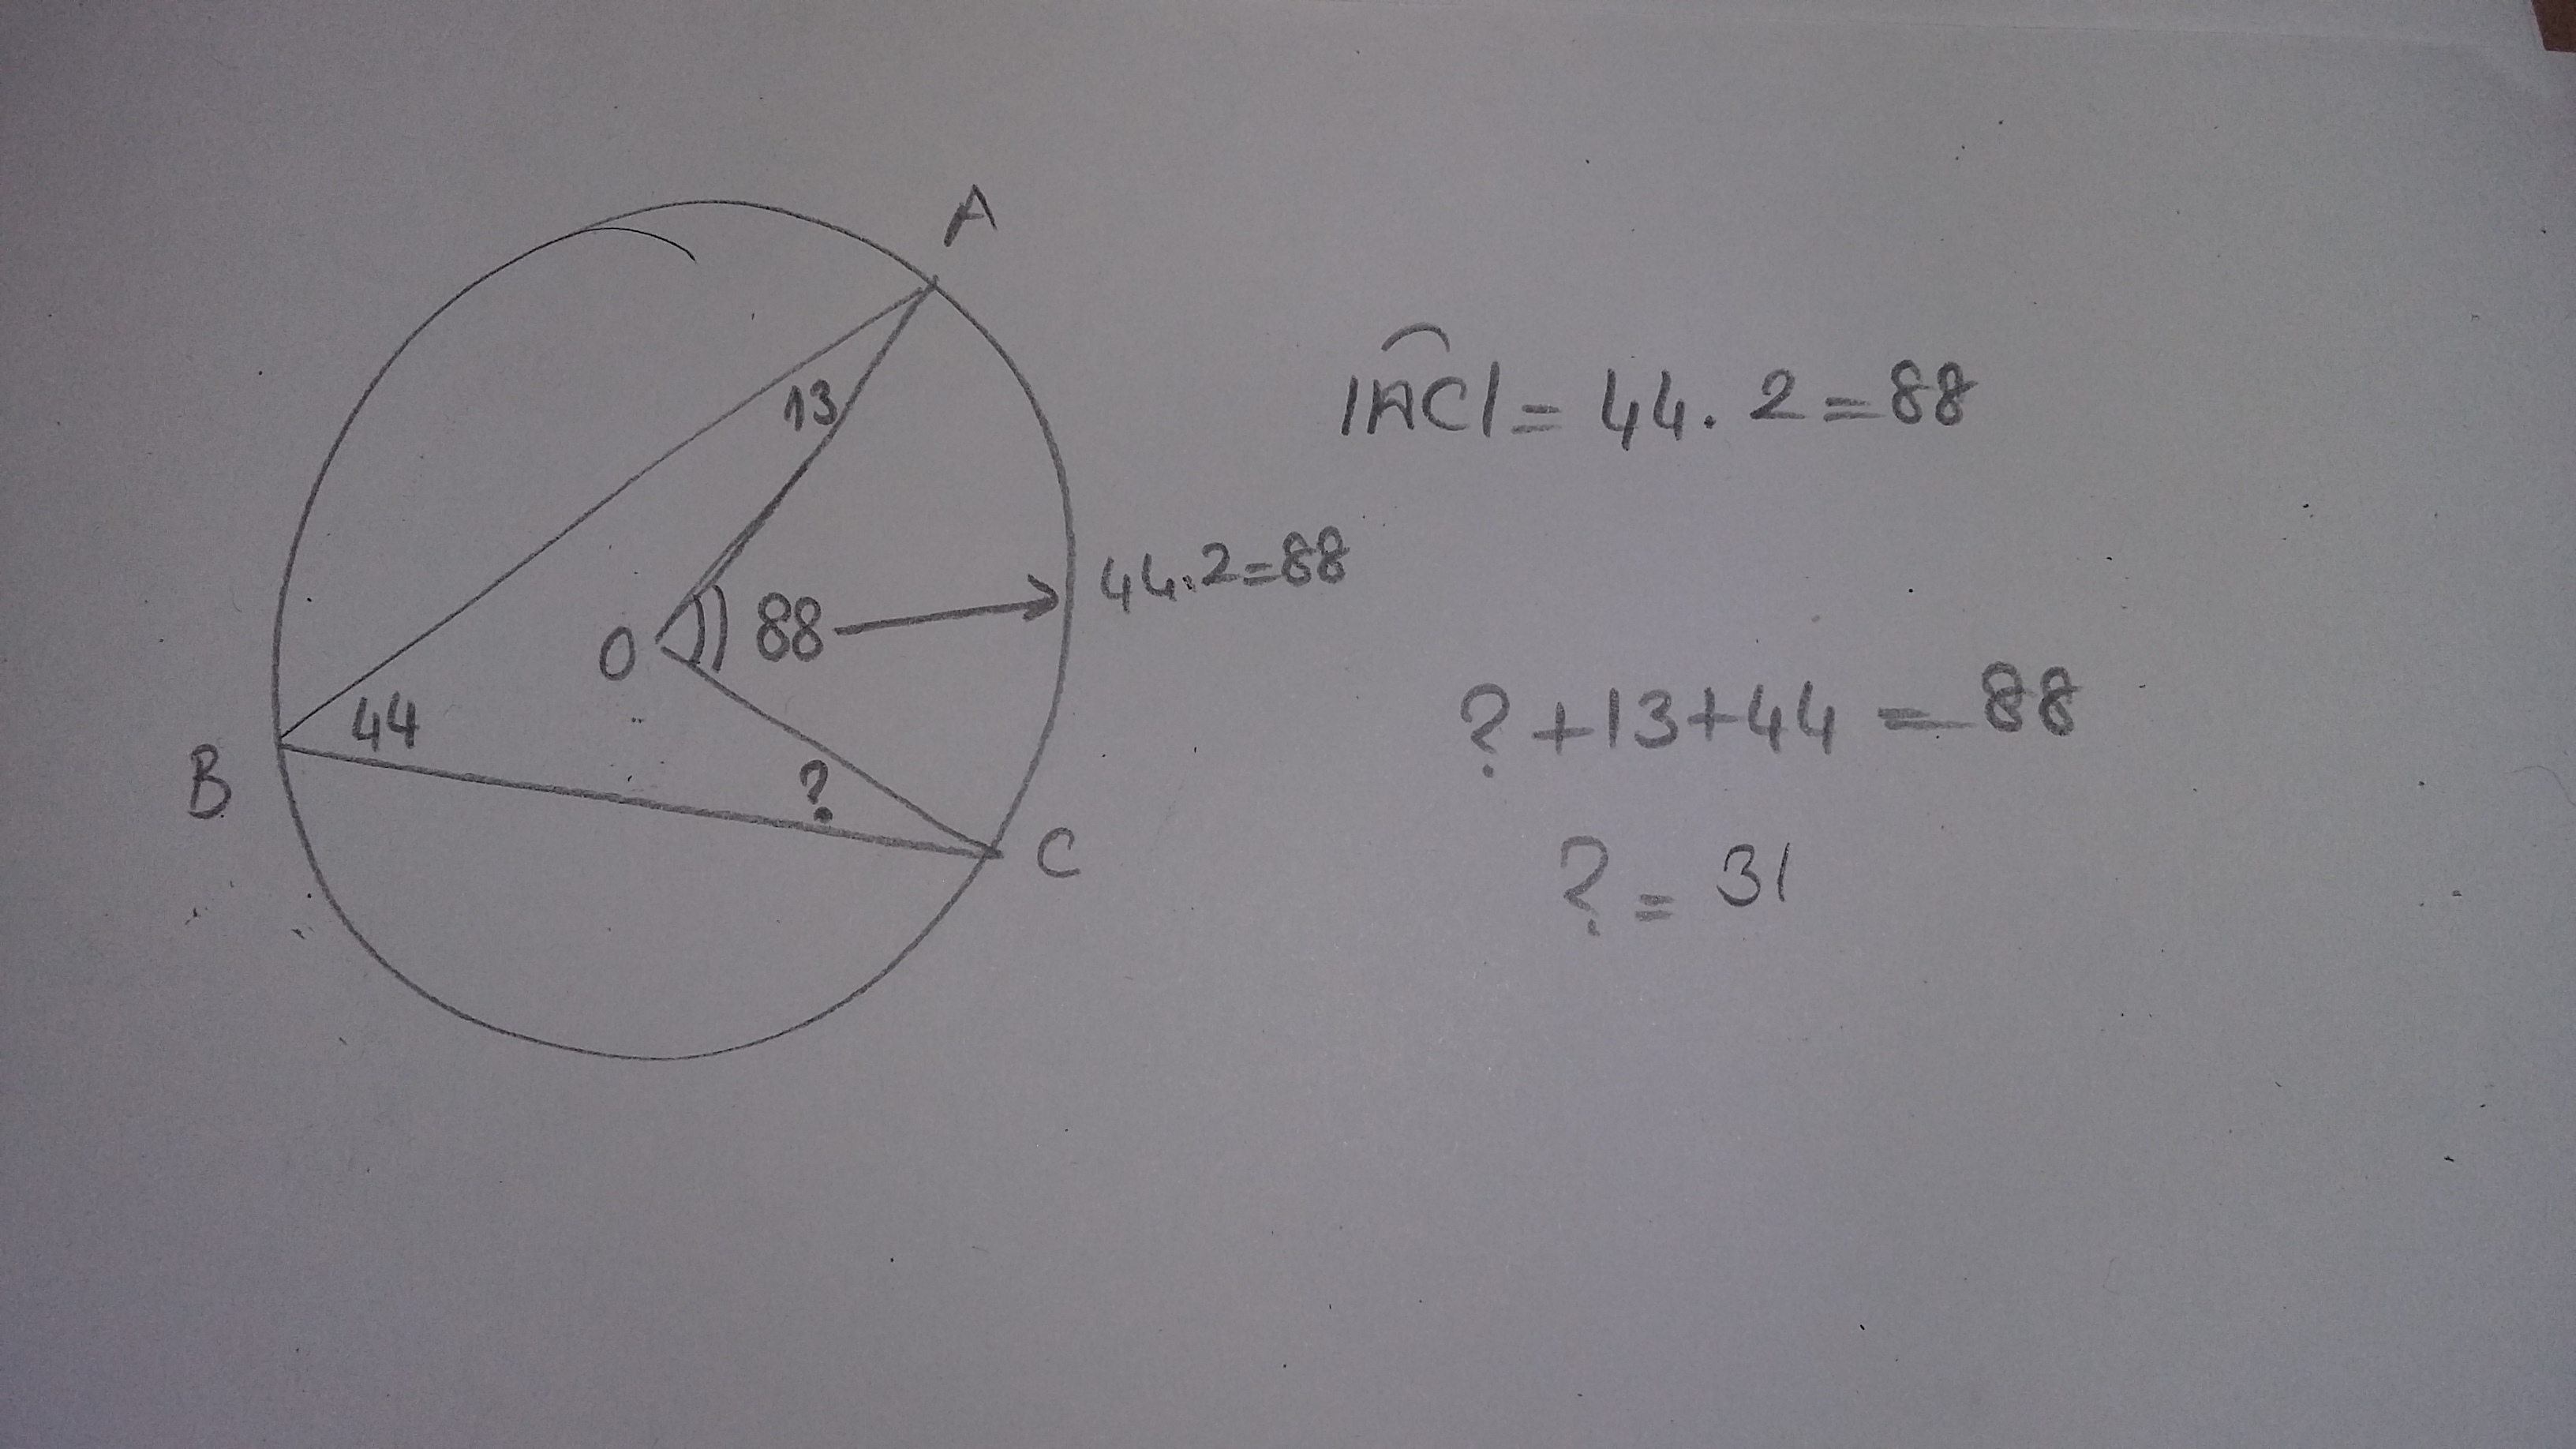 A
13
|AC| = 44 . 2 = 88
44.2=88
O 88
44
B
?
C
? + 13 + 44 = 88
? = 31